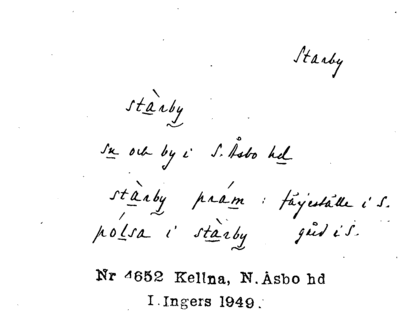 Starby
stàrby
sn och by i S. Åsbo hd
stàrby prám : färjeställe i S.
pólsa i stàrby gård i S.
Nr 4652 Kellna, N. Åsbo hd
I. Ingers 1949.